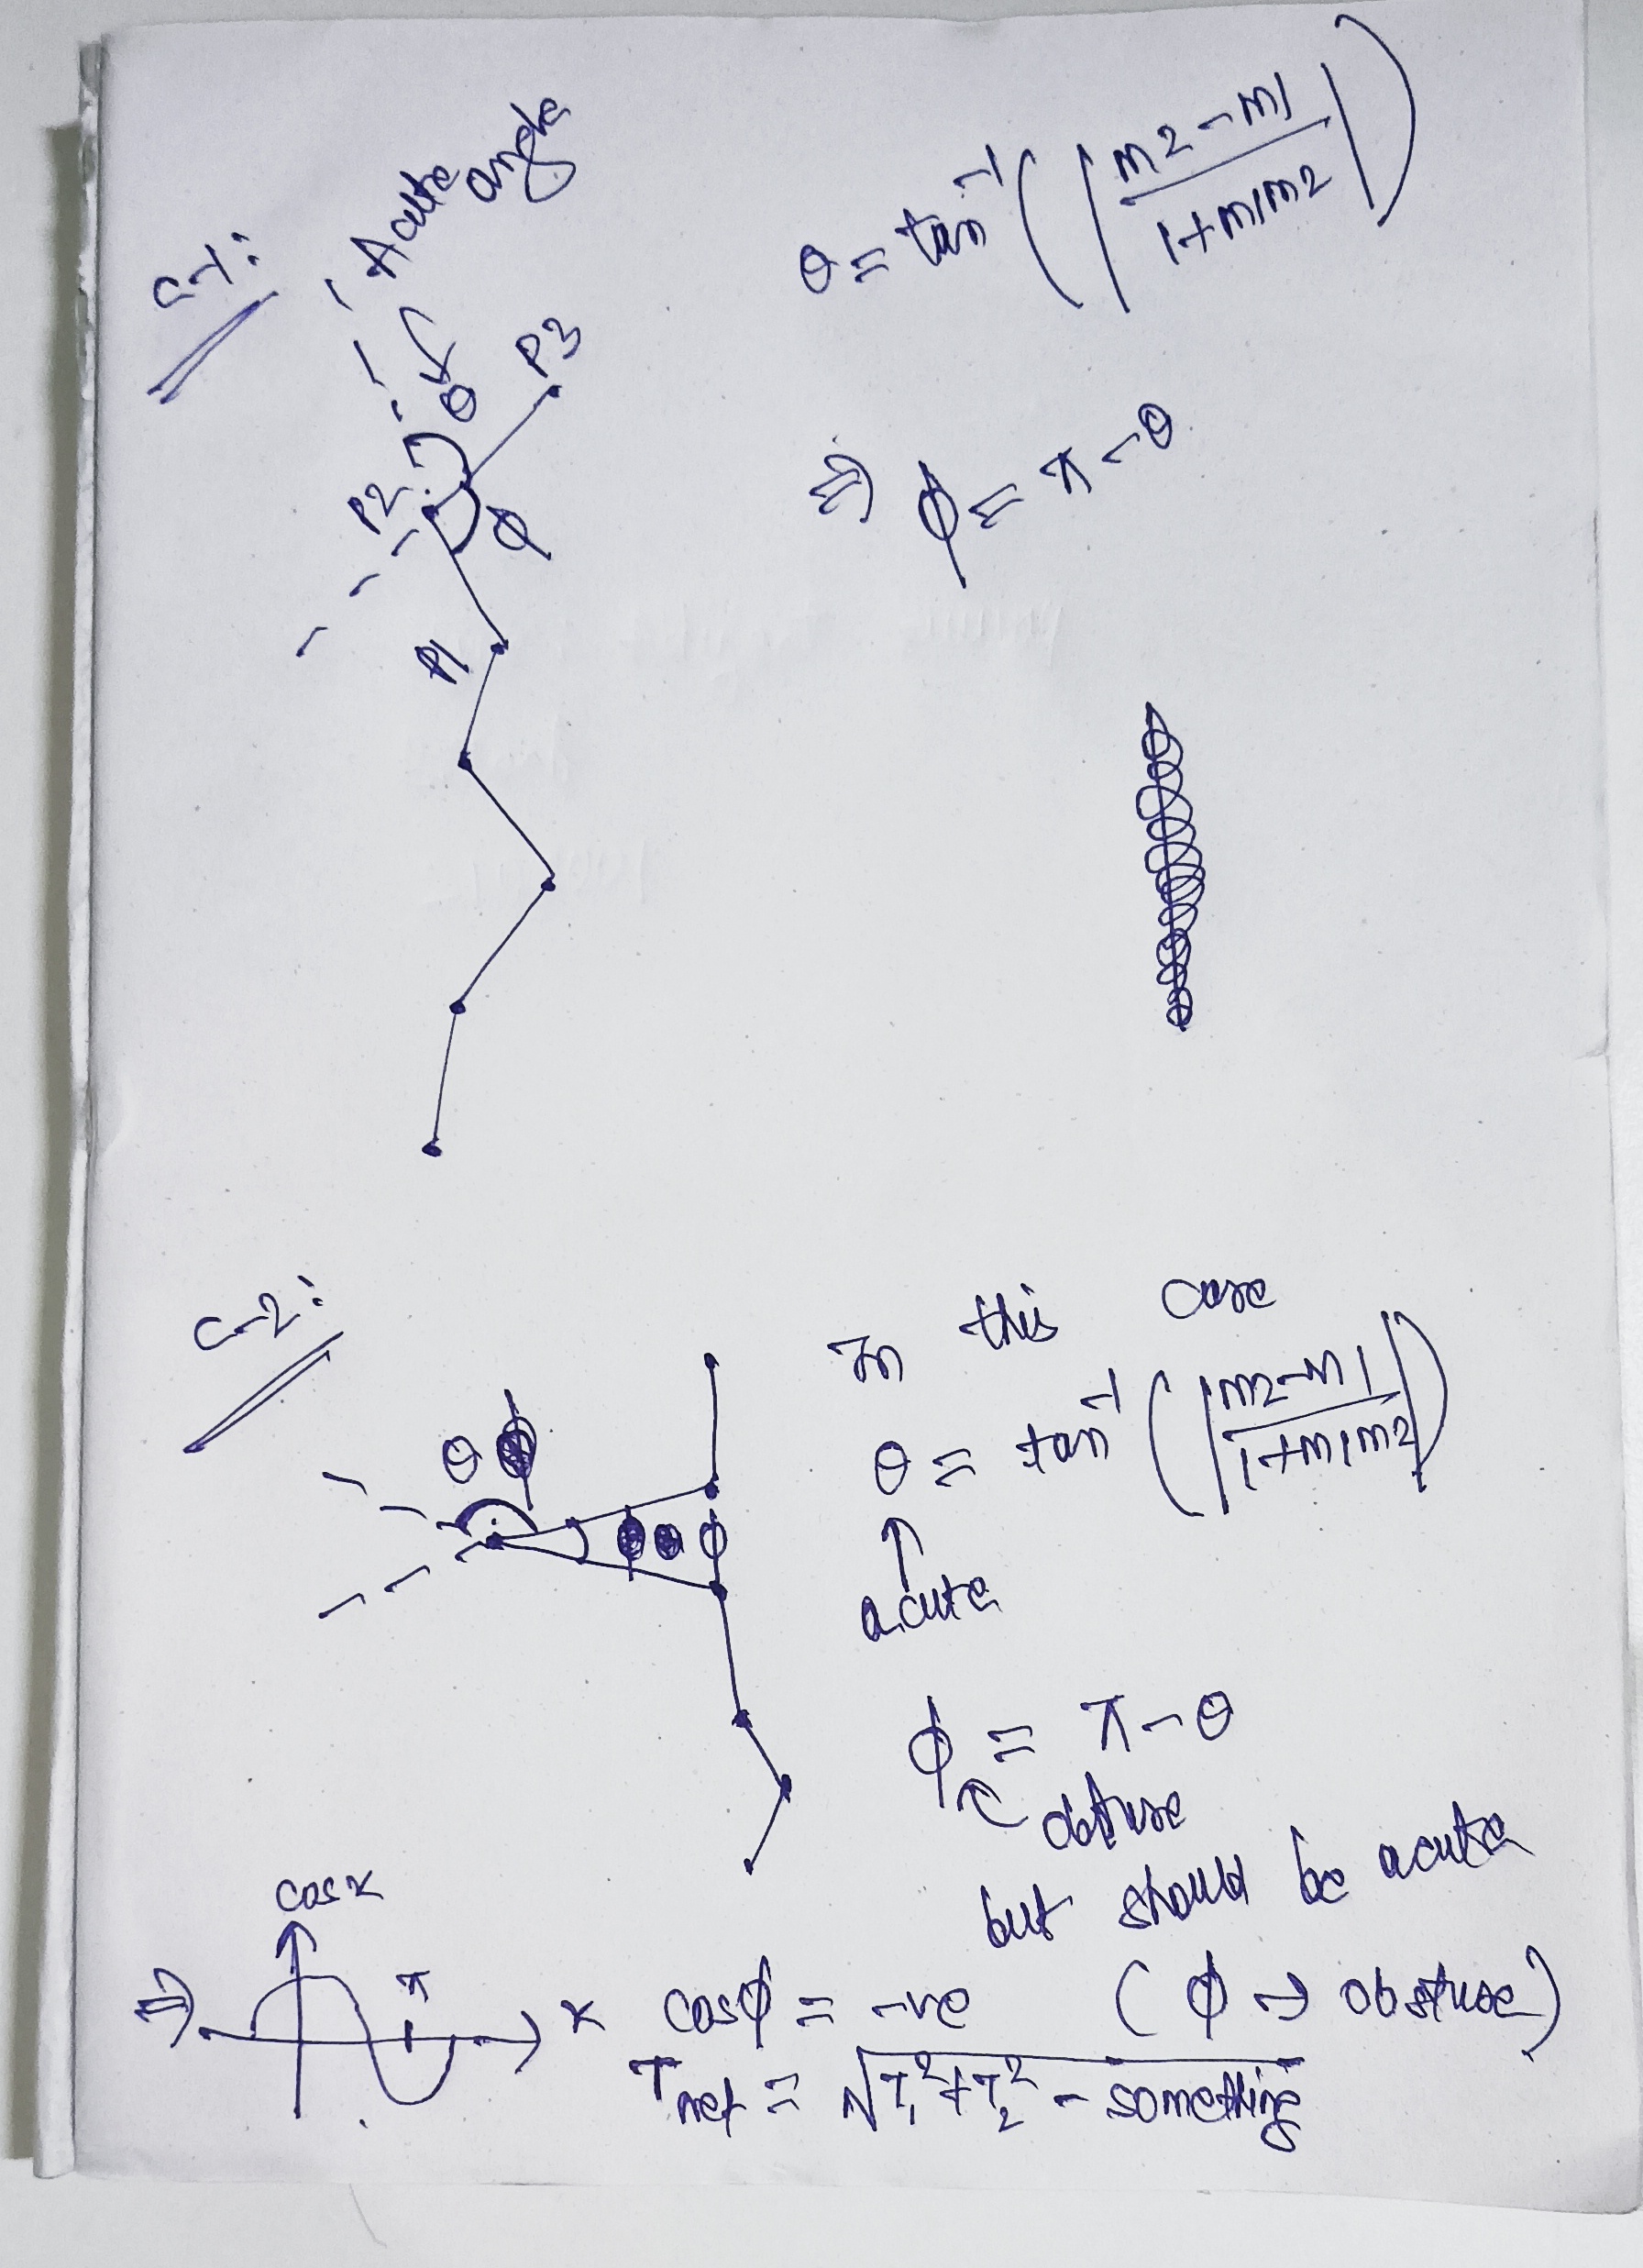 C-1:
Acute angle
θ = tan⁻¹(|m2-m1 / 1+m1m2|)
θ
P3
P2
ϕ
⇒ ϕ = π-θ
P1
C-2:
In this case
θ = tan⁻¹(|m2-m1 / 1+m1m2|)
θ
ϕ
↑
acute
ϕ = π-θ
obtuse
but should be acute
cosx
π
⇒ x
cosϕ = -ve (ϕ → obstuse)
Tnet = √T₁²+T₂² - something